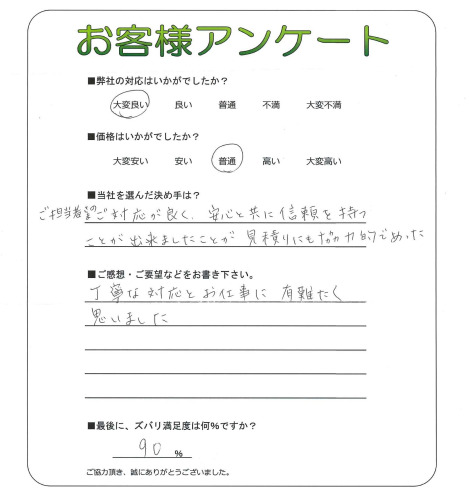 お客様アンケート
■弊社の対応はいかがでしたか？
大変良い 良い 普通 不満 大変不満
■価格はいかがでしたか？
大変安い 安い 普通 高い 大変高い
■当社を選んだ決め手は？
ご担当者のご対応が良く、安心と共に信頼を持つ
ことが出来ましたことが見積りにも協力的であった
■ご感想・ご要望などをお書き下さい。
丁寧な対応とお仕事に有難たく
思いました
■最後に、ズバリ満足度は何%ですか？
90 %
ご協力頂き、誠にありがとうございました。